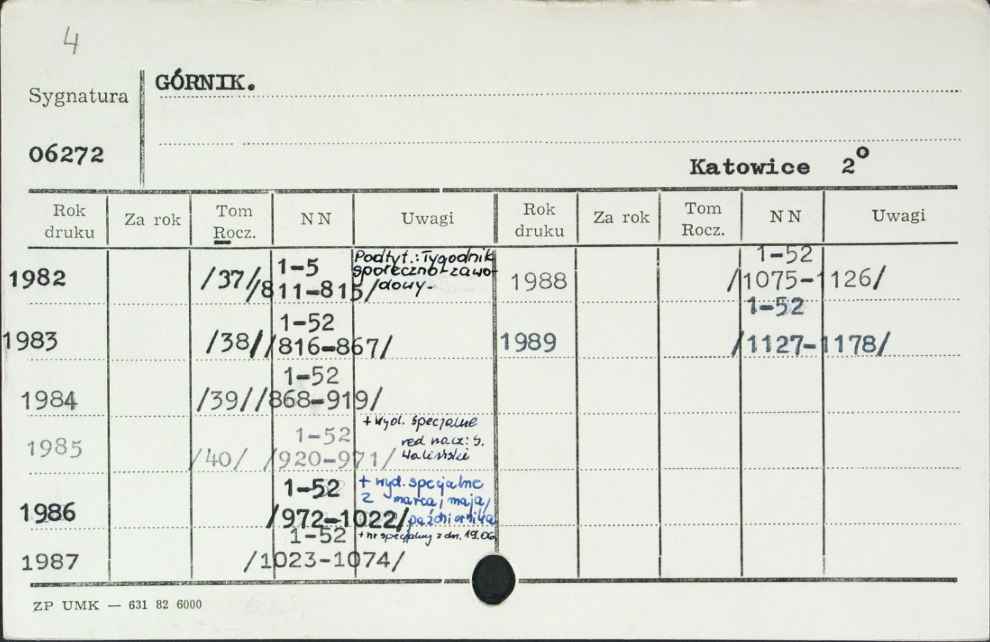 4
GÓRNIK.
Sygnatura
06272
Katowice 2°
Rok druku Za rok Tom Rocz. NN Uwagi Rok druku Za rok Tom Rocz. NN Uwagi
1982 /37/ 1-5 /811-815/ Podtyt.: Tygodnik
społeczno-zawo-
dowy-
1988 1-52 /1075-1126/
1983 /38/ 1-52 /816-867/
1989 1-52 /1127-1178/
1984 /39/ 1-52 /868-919/
1985 /40/ 1-52 /920-971/ + wyd. specjalne
red nacz: S.
1986 1-52 /972-1022/ + wyd. specjalne
z marca, maja,
października
1987 1-52 /1023-1074/ + nr specjalny z dn. 19.06
ZP UMK — 631 82 6000